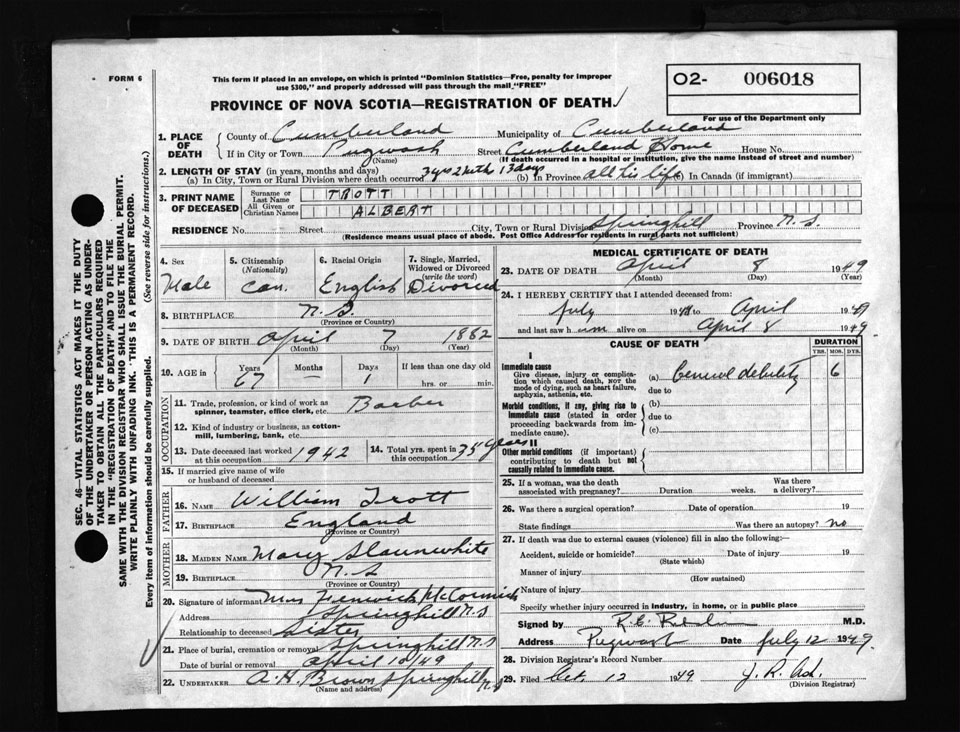 FORM 6
This form if placed in an envelope, on which is printed "Dominion Statistics—Free, penalty for improper
use $300," and properly addressed will pass through the mail "FREE"
O2- 006018
For use of the Department only
PROVINCE OF NOVA SCOTIA—REGISTRATION OF DEATH
SEC. 46—VITAL STATISTICS ACT MAKES IT THE DUTY
OF THE UNDERTAKER OR PERSON ACTING AS UNDER-
TAKER TO OBTAIN ALL THE PARTICULARS REQUIRED
IN THE "REGISTRATION OF DEATH" AND TO FILE THE
SAME WITH THE DIVISION REGISTRAR WHO SHALL ISSUE THE BURIAL PERMIT.
WRITE PLAINLY WITH UNFADING INK. THIS IS A PERMANENT RECORD.
Every item of information should be carefully supplied. (See reverse side for instructions.)
1. PLACE OF DEATH
County of Cumberland Municipality of Cumberland
If in City or Town Pugwash Street Cumberland Home House No.
(Name) (If death occurred in a hospital or institution, give the name instead of street and number)
2. LENGTH OF STAY (in years, months and days)
(a) In City, Town or Rural Division where death occurred 3 yrs 2 mths 13 days (b) In Province all his life (c) In Canada (if immigrant)
3. PRINT NAME OF DECEASED
Surname or Last Name TROTT
All Given or Christian Names ALBERT
RESIDENCE No. Street City, Town or Rural Division Springhill Province N.S.
(Residence means usual place of abode. Post Office Address for residents in rural parts not sufficient)
4. Sex Male
5. Citizenship (Nationality) Can.
6. Racial Origin English
7. Single, Married, Widowed or Divorced (write the word) Divorced
8. BIRTHPLACE N.S.
(Province or Country)
9. DATE OF BIRTH April 7 1882
(Month) (Day) (Year)
10. AGE IN Years 67 Months — Days 1 If less than one day old hrs. or min.
OCCUPATION
11. Trade, profession, or kind of work as
spinner, teamster, office clerk, etc. Barber
12. Kind of industry or business, as cotton-
mill, lumbering, bank, etc.
13. Date deceased last worked at this occupation 1942
14. Total yrs. spent in this occupation 35 years
15. If married give name of wife
or husband of deceased
FATHER
16. NAME William Trott
17. BIRTHPLACE England
(Province or Country)
MOTHER
18. MAIDEN NAME Mary Slaunwhite
19. BIRTHPLACE N.S
(Province or Country)
20. Signature of informant Mrs Fenwick McCormick
Address Springhill N.S
Relationship to deceased Sister
21. Place of burial, cremation or removal Springhill N.S
Date of burial or removal April 10/49
22. UNDERTAKER A. H. Brown Springhill N.S
(Name and address)
MEDICAL CERTIFICATE OF DEATH
23. DATE OF DEATH April 8 1949
(Month) (Day) (Year)
24. I HEREBY CERTIFY that I attended deceased from:
July 19 to April 1949
and last saw h im alive on April 8 1949
CAUSE OF DEATH DURATION
YRS. MOS. DYS.
I
Immediate cause
Give disease, injury or complica-
tion which caused death, NOT the
mode of dying, such as heart failure,
asphyxia, asthenia, etc.
(a) General debility 6
due to
Morbid conditions, if any, giving rise to
immediate cause (stated in order
proceeding backwards from im-
mediate cause).
(b)
due to
(c)
II
Other morbid conditions (if important)
contributing to death but not
causally related to immediate cause.
25. If a woman, was the death
associated with pregnancy? Duration weeks. Was there
a delivery?
26. Was there a surgical operation? Date of operation 19
State findings Was there an autopsy? no
27. If death was due to external causes (violence) fill in also the following:—
Accident, suicide or homicide? Date of injury 19
(State which)
Manner of injury
(How sustained)
Nature of injury
Specify whether injury occurred in industry, in home, or in public place
Signed by R.E. M.D.
Address Pugwash Date July 12 1949
28. Division Registrar's Record Number
29. Filed Oct. 12 1949 J. R.
(Division Registrar)